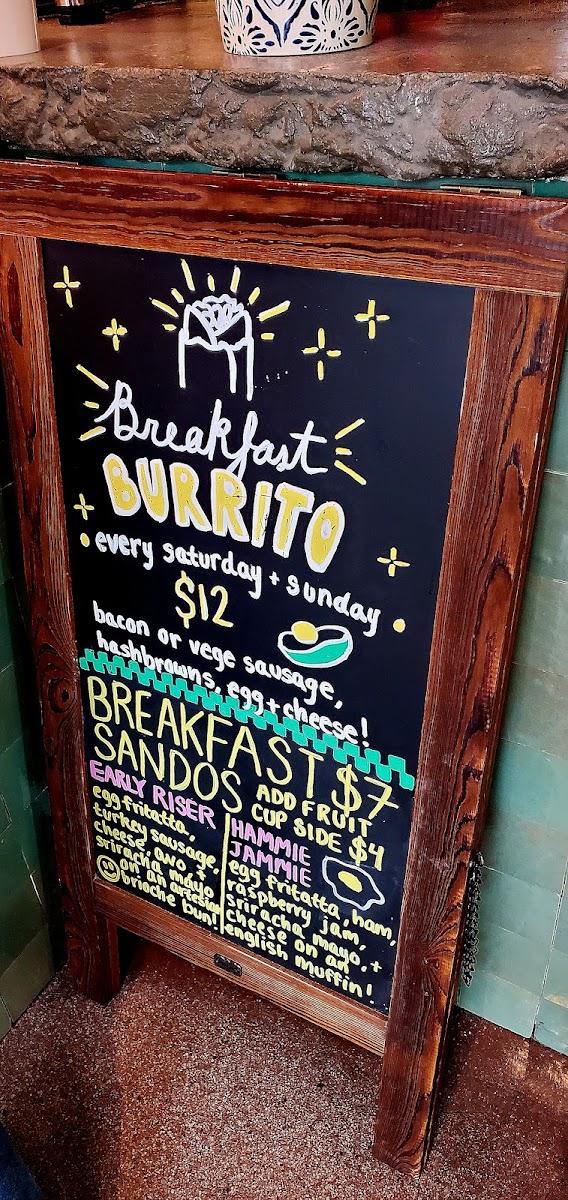 Breakfast
BURRITO
every saturday + sunday
$12
bacon or vege sausage,
hashbrowns, egg + cheese!
BREAKFAST $7
SANDOS
ADD FRUIT
CUP SIDE $4
EARLY RISER
egg fritatta,
turkey sausage,
cheese, avo, +
sriracha mayo
on an artesian
brioche bun!
HAMMIE
JAMMIE
egg fritatta, ham,
raspberry jam,
sriracha mayo, +
cheese on an
english muffin!